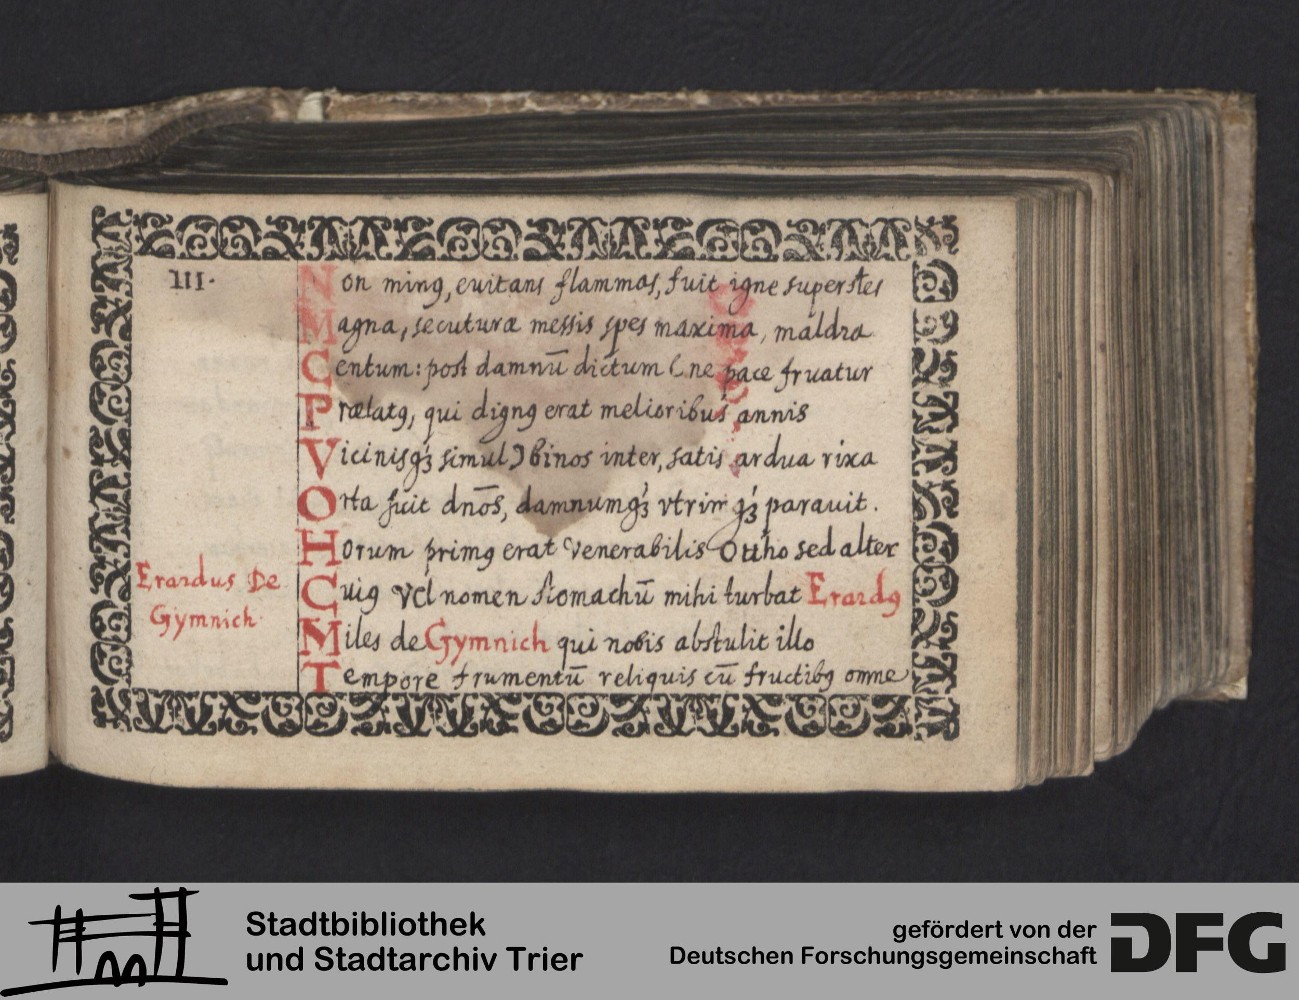 III.
Non minꝰ, euitans flammas, fuit igne superstes
Magna, secuturæ messis spes maxima, maldra
Centum: post damnū dictum (ne pace fruatur
Prælatꝰ, qui dignꝰ erat melioribus annis
Vicinisqꝫ simul) binos inter, satis ardua rixa
Orta fuit dnōs, damnumqꝫ vtrimqꝫ parauit.
Horum primꝰ erat Venerabilis Ottho sed alter
Erardus De
Cuiꝰ vel nomen stomachū mihi turbat Erardꝰ
Gÿmnich
Miles de Gymnich qui nobis abstulit illo
Tempore frumentū reliquis cū fructibꝰ omne
Stadtbibliothek
und Stadtarchiv Trier
gefördert von der
Deutschen Forschungsgemeinschaft
DFG